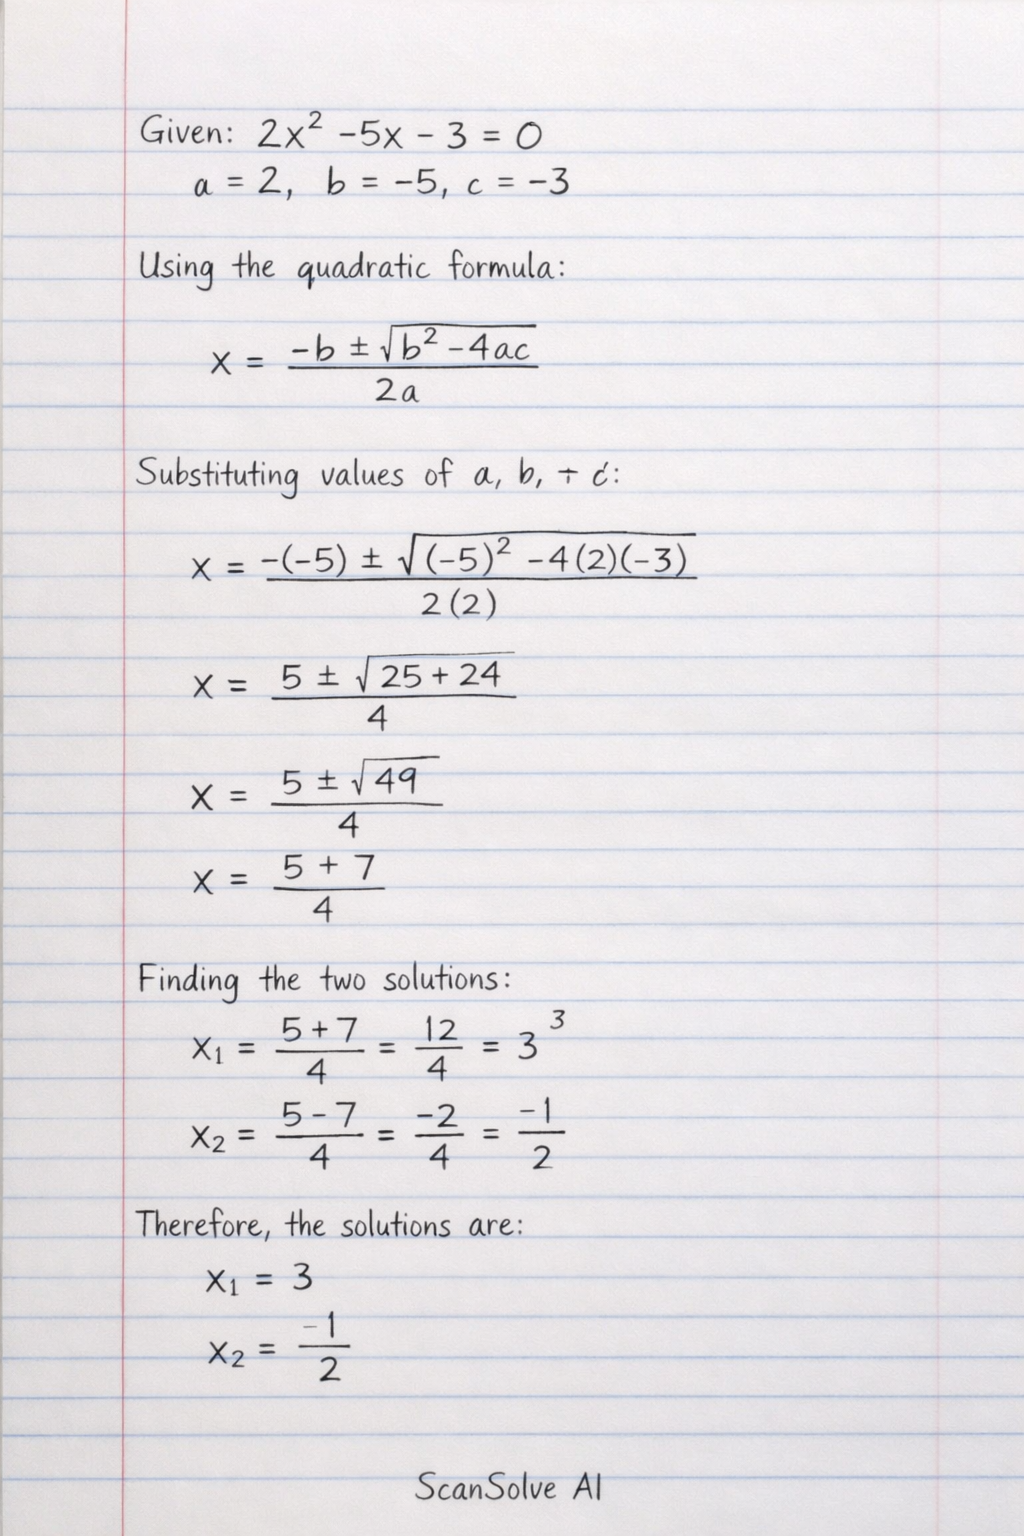 Given: 2x² -5x - 3 = 0
a = 2, b = -5, c = -3
Using the quadratic formula:
x = (-b ± √(b² - 4ac)) / 2a
Substituting values of a, b, + c:
x = (-(-5) ± √((-5)² - 4(2)(-3))) / 2(2)
x = (5 ± √(25 + 24)) / 4
x = (5 ± √49) / 4
x = (5 + 7) / 4
Finding the two solutions:
x₁ = (5 + 7) / 4 = 12 / 4 = 3 ³
x₂ = (5 - 7) / 4 = -2 / 4 = -1 / 2
Therefore, the solutions are:
x₁ = 3
x₂ = -1 / 2
ScanSolve AI